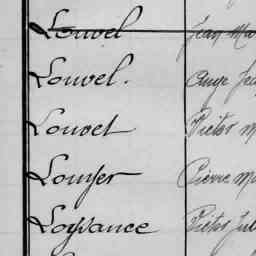 Louvel Jean Ma
Louvel. Ange Jea
Louvet Victor M
Louyer Pierre Ma
Loysance Victor Jul